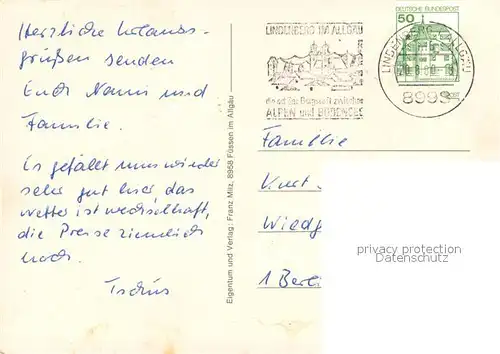 Herzliche Urlaubs-
grüßen senden
Euch Nanni und
Familie.
Es gefällt uns wieder
sehr gut hier, das
Wetter ist wechselhaft,
die Preise ziemlich
hoch.
Tschüs
Eigentum und Verlag: Franz Milz, 8958 Füssen im Allgäu
LINDENBERG IM ALLGÄU
zwischen
ALPEN und BODENSEE
DEUTSCHE BUNDESPOST
50
LINDENBERG ALLGÄU
8998
Familie
Kurt
Wiedg
1 Berli
privacy protection
Datenschutz